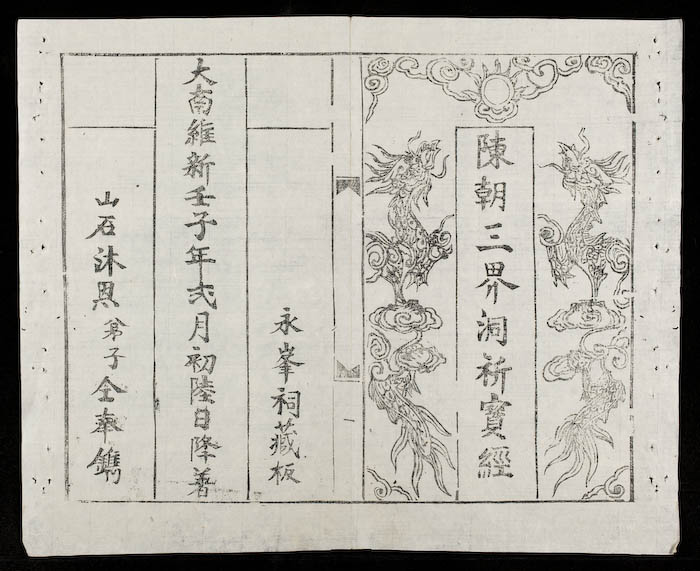 陳朝三界洞祈寶經
永峯祠藏板
大南維新壬子年弍月初陸日降著
山石沐恩弟子仝奉鐫